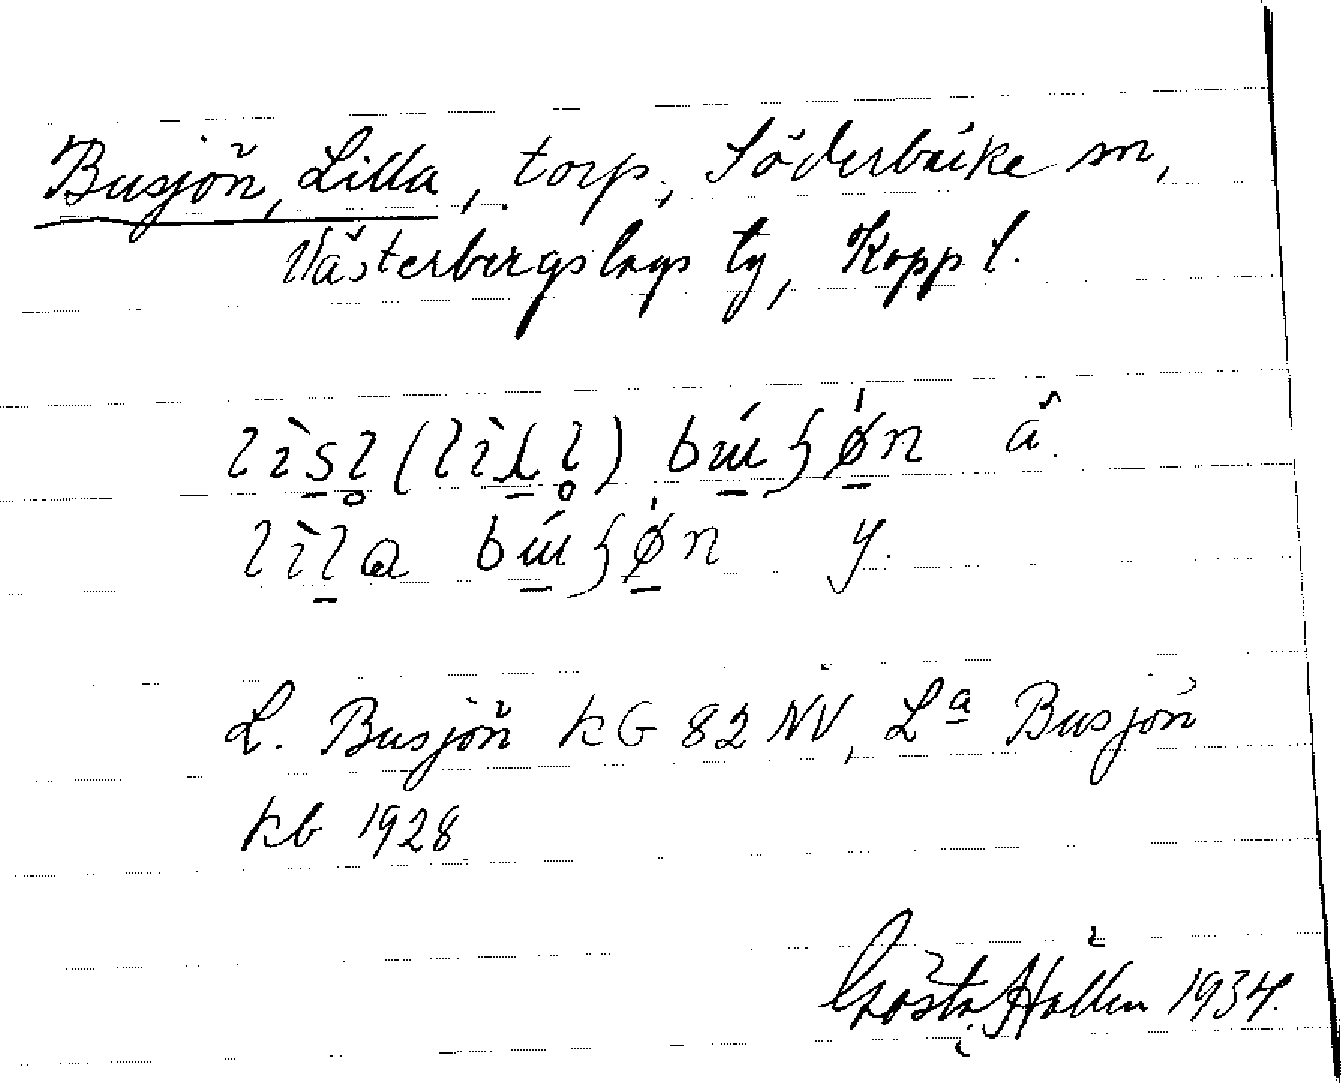 Busjön, Lilla, torp, Söderbärke sn,
Västerbergslags tg, Kopp l.
å.
lìla bɯ́ʒøn y.
L. Busjön KG 82 NV, Lª Busjön
kb 1928
Gösta Hallen 1934.